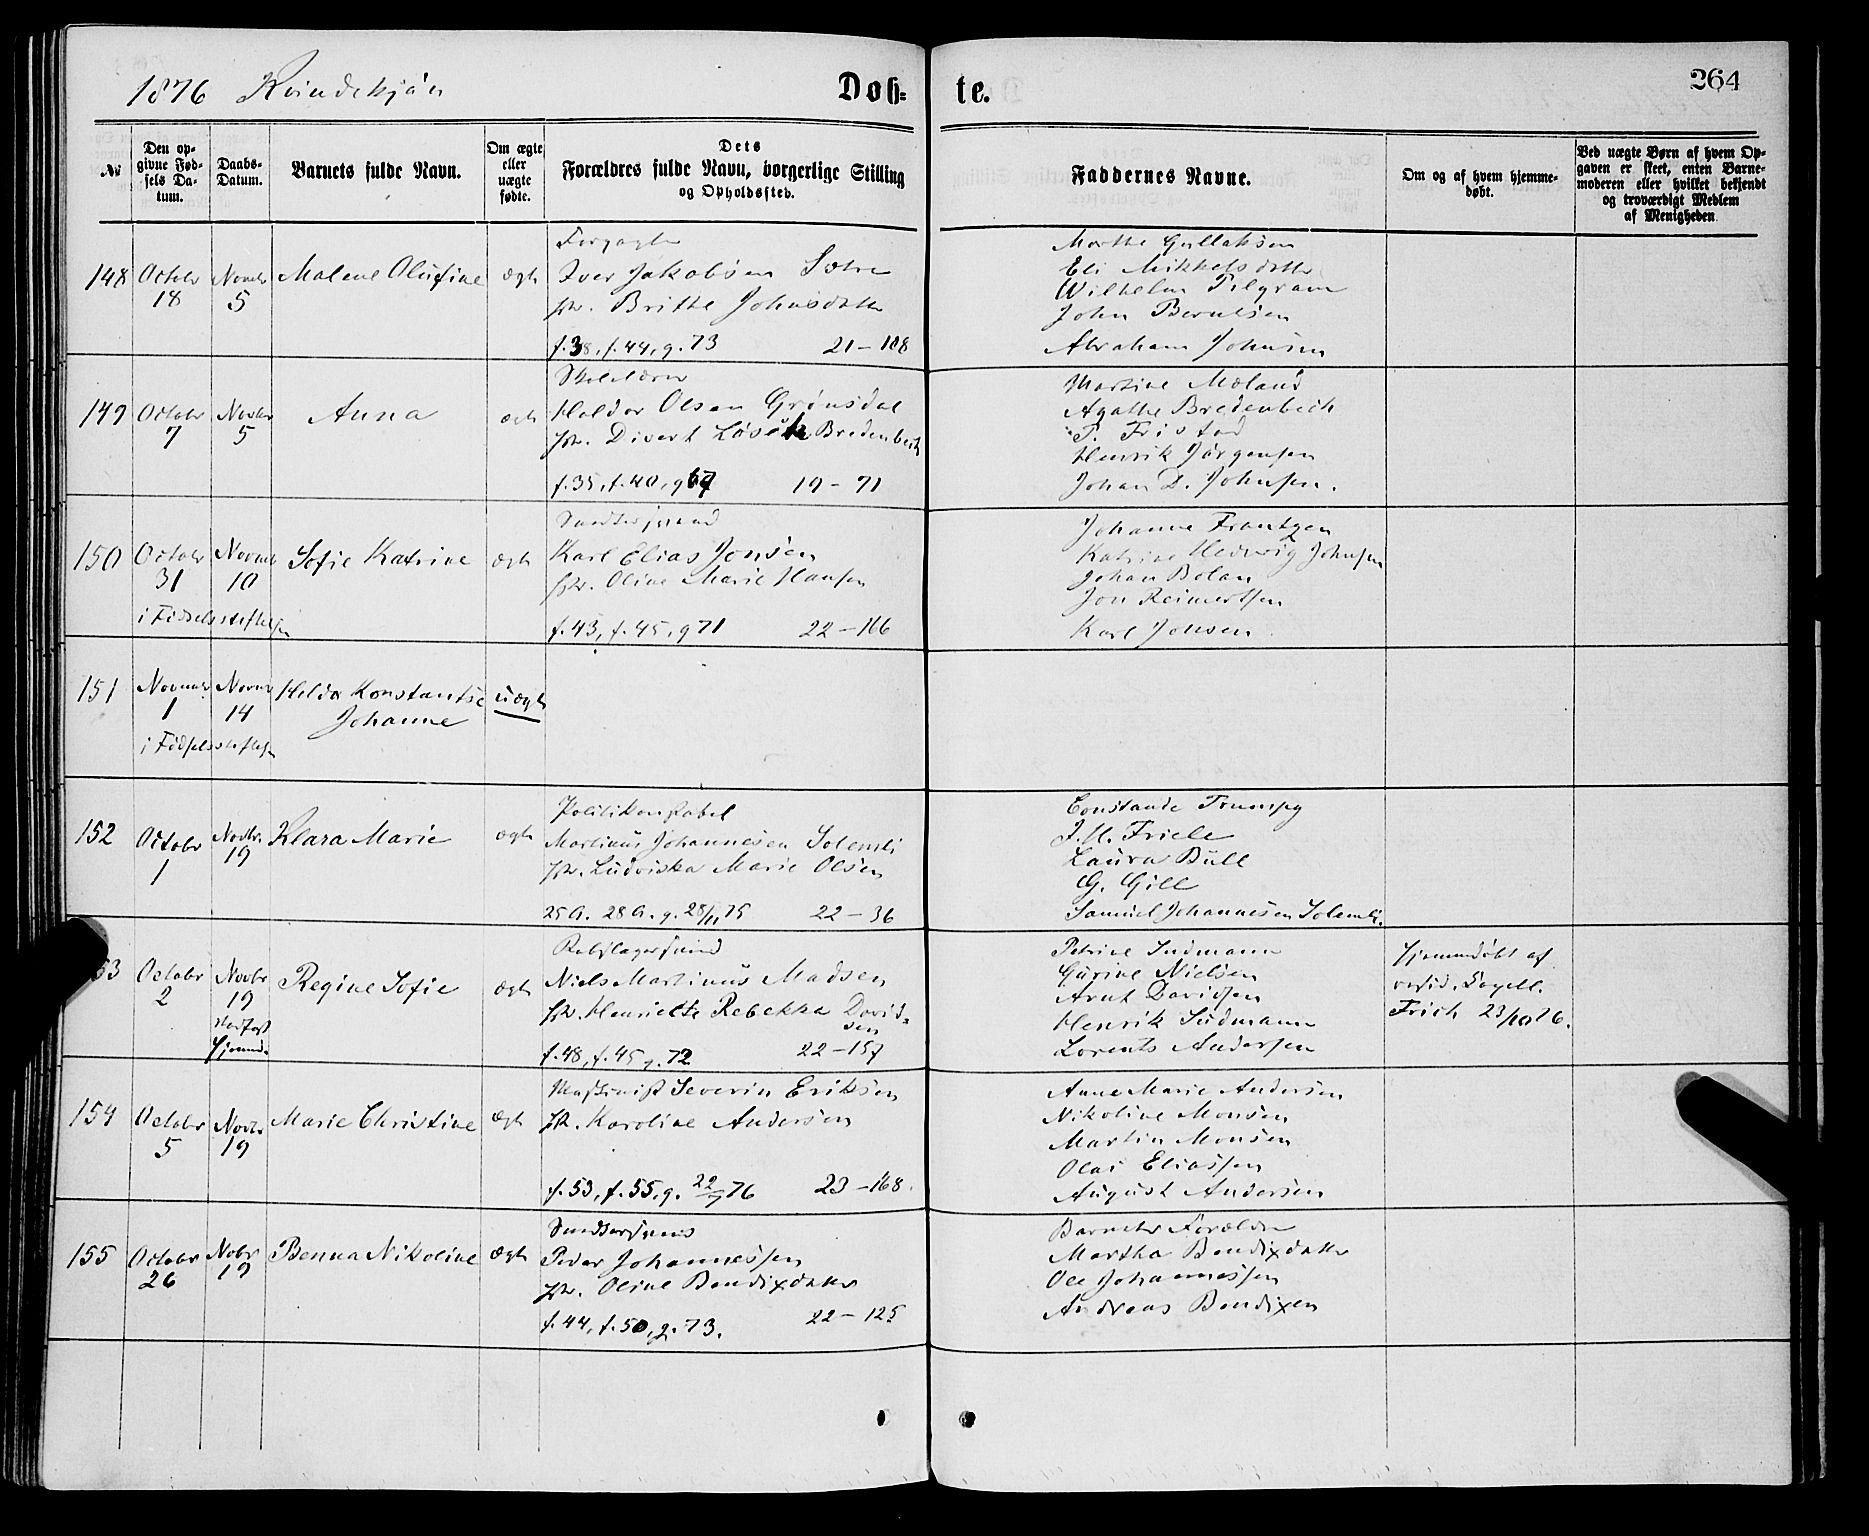 1876 Kvindekjön
Döb=
te.
264
№
Den op-
givne Fød-
sels Da-
tum.
Daabs-
Datum.
Barnets fulde Navn.
Om ægte
eller
uægte
fødte.
Dets
Forældres fulde Navn, borgerlige Stilling
og Opholdssted.
Faddernes Navne.
Om og af hvem hjemme-
døbt.
Ved uægte Børn af hvem Op-
gaven er skeet, enten Barne-
moderen eller hvilket bekjendt
og troværdigt Medlem
af Menigheden.
148
Octobr
18
Novbr
5
Malene Olufine
ægte
Iver Jakobsen Sætre
Hst. Britte Johnsdatter
f. 38, f. 44, g. 73 21-108
Marthe Gullaksen
Eli Mikkelsdatter
Wilhelm Pilgram
John Berntsen
Abraham Johnsen
149
Octobr
7
Novbr
5
Anna
ægte
Haldor Olsen Grönsdal
Hst. Divert Bredenbech
f. 35, f. 40, g 67 19-71
Martine Moland
Agathe Bredenbech
P. Fristad
Henrik Jörgensen
Johan D. Johnsen.
150
Octobr
31
Novbr
10
i Födselsstiftelsen
Sofie Katrine
ægte
Karl Elias Jonsen
Hst. Oline Marie Hansen
f. 43, f. 45, g 71 22-166
Johanne Frantzen
Katrine Hedwig Johnsen
Johan Bolan
Jon Reimertsen
Karl Jonsen
151
Novembr
1
Novbr
14
i Födselsstiftelsen
Helda Konstantse
Johanne
uægte
152
Octobr
1
Novbr.
19
Klara Marie
ægte
Politikonstabel
Martinus Johannesen Solemli
Hst. Ludviska Marie Olsen
25 A. 28 A. g. 28/11 75 22-36
Constande Trumpy
J. M. Friele
Laura Bull
G. Gill
Samuel Johannesen Solemli.
53
Octobr
2
Novbr
19
Stadfæst
Hjemmed.
Regine Sofie
ægte
Rebslagersvend
Niels Martinus Madsen
Hst. Henriette Rebekka David=
sen
f. 48, f. 45 g. 72 22-157
Petrine Sudmann
Gurine Nielsen
Arnt Davidsen
Henrik Sudmann
Lorents Andersen
Hjemmedöbt af
resid. Capell.
Frich 23/10 76.
154
Octobr
5
Novbr
19
Marie Christine
ægte
Maskinist Severin Eriksen
Hst. Karoline Andersen
f. 53, f. 55, g. 22/7 76 23-168.
Anne Marie Andersen
Nikoline Monsen
Martin Monsen
Olai Eliassen
August Andersen
155
Octobr
26
Nobr
19
Benna Nikoline
ægte
Peder Johannessen
Hst. Oline Bendixdatter
f. 44, f. 50, g. 73. 22-125
Barnets Forældre
Martha Bendixdatter
Ole Johannessen
Andreas Bendixen